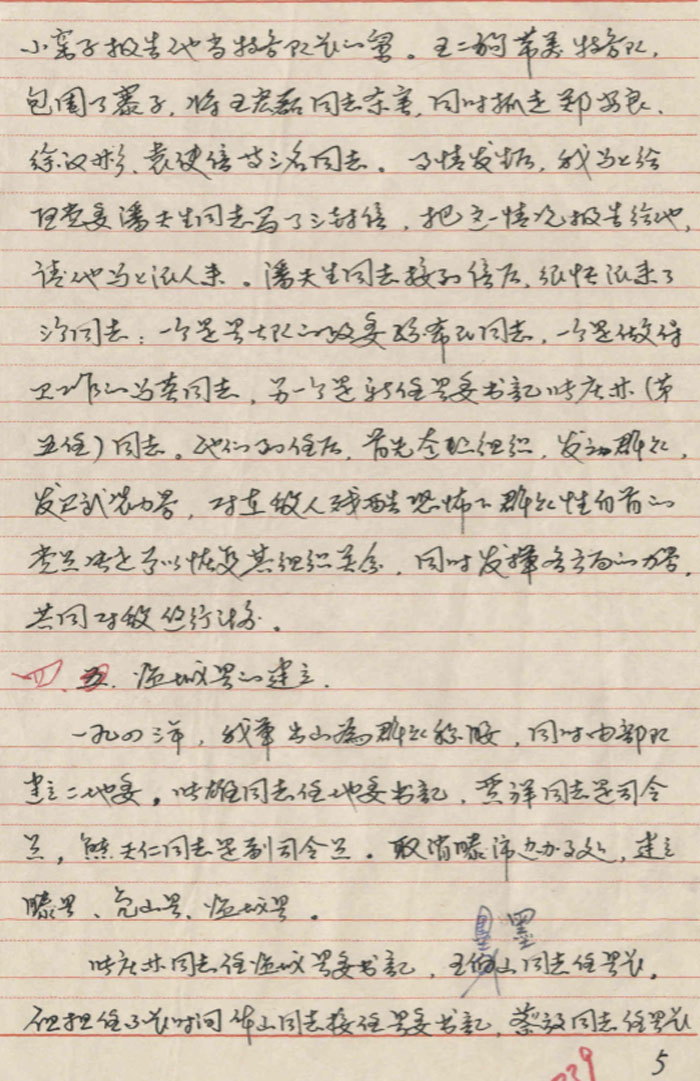 小窝子报告他当特务队长的舅。王二狗带着特务队，
包围了寨子，将王宏磊同志杀害，同时抓走郑安良、
徐汉彬、袁建信等三名同志。事情发生后，我马上给
区党委潘复生同志写了三封信，把这一情况报告给他，
请他马上派人来。潘复生同志接到信后，很快派来了
三个同志：一个是县大队的政委孙布民同志，一个是做保
卫工作的马英同志，另一个是新任县委书记时庆林（第
五任）同志。他们到任后，首先查处组织，发动群众，
发展武装力量，对在敌人残酷恐怖下群众性自首的
党员决定予以恢复其组织关系，同时发挥各方面的力量，
共同对敌进行斗争。
四、临城县的建立。
一九四三年，我军出山为群众称颂，同时由部队
建立二地委，时雄同志任地委书记，贾祥同志是司令
员，熊天仁同志是副司令员。取消滕沛边办事处，建立
滕县、凫山县、临城县。
时庆林同志任临城县委书记，王墨山同志任县长。
但担任不长时间 山同志接任县委书记，蔡毅同志任县长
5